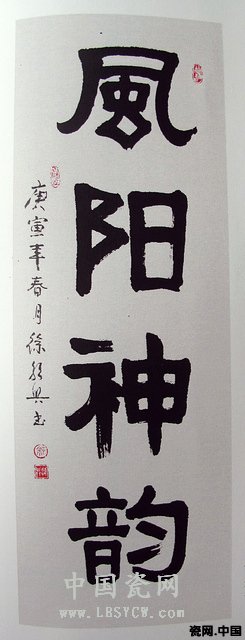 風阳神韵
庚寅年春月徐
中国瓷网
www.LBSYCW.com
瓷网.中国